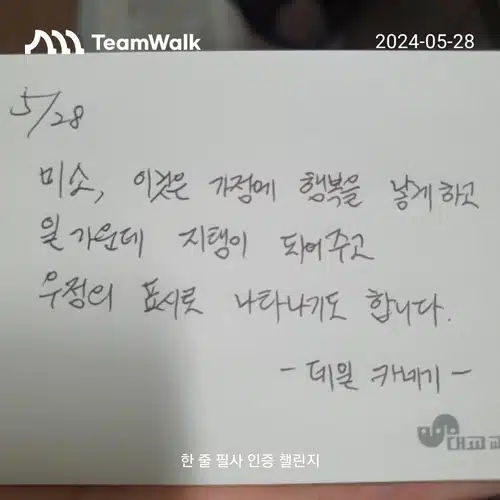 TeamWalk
2024-05-28
5/28
미소, 이것은 가정에 행복을 낳게 하고
일 가운데 지탱이 되어주고
우정의 표시로 나타나기도 합니다.
- 데일 카네기 -
대교
한 줄 필사 인증 챌린지